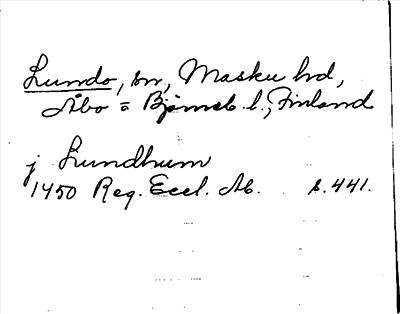 Lundo, sn, Masku hd,
Åbo = Björneb. l., Finland
j Lundhum
1450 Reg. Eccl. Ab. s. 441.